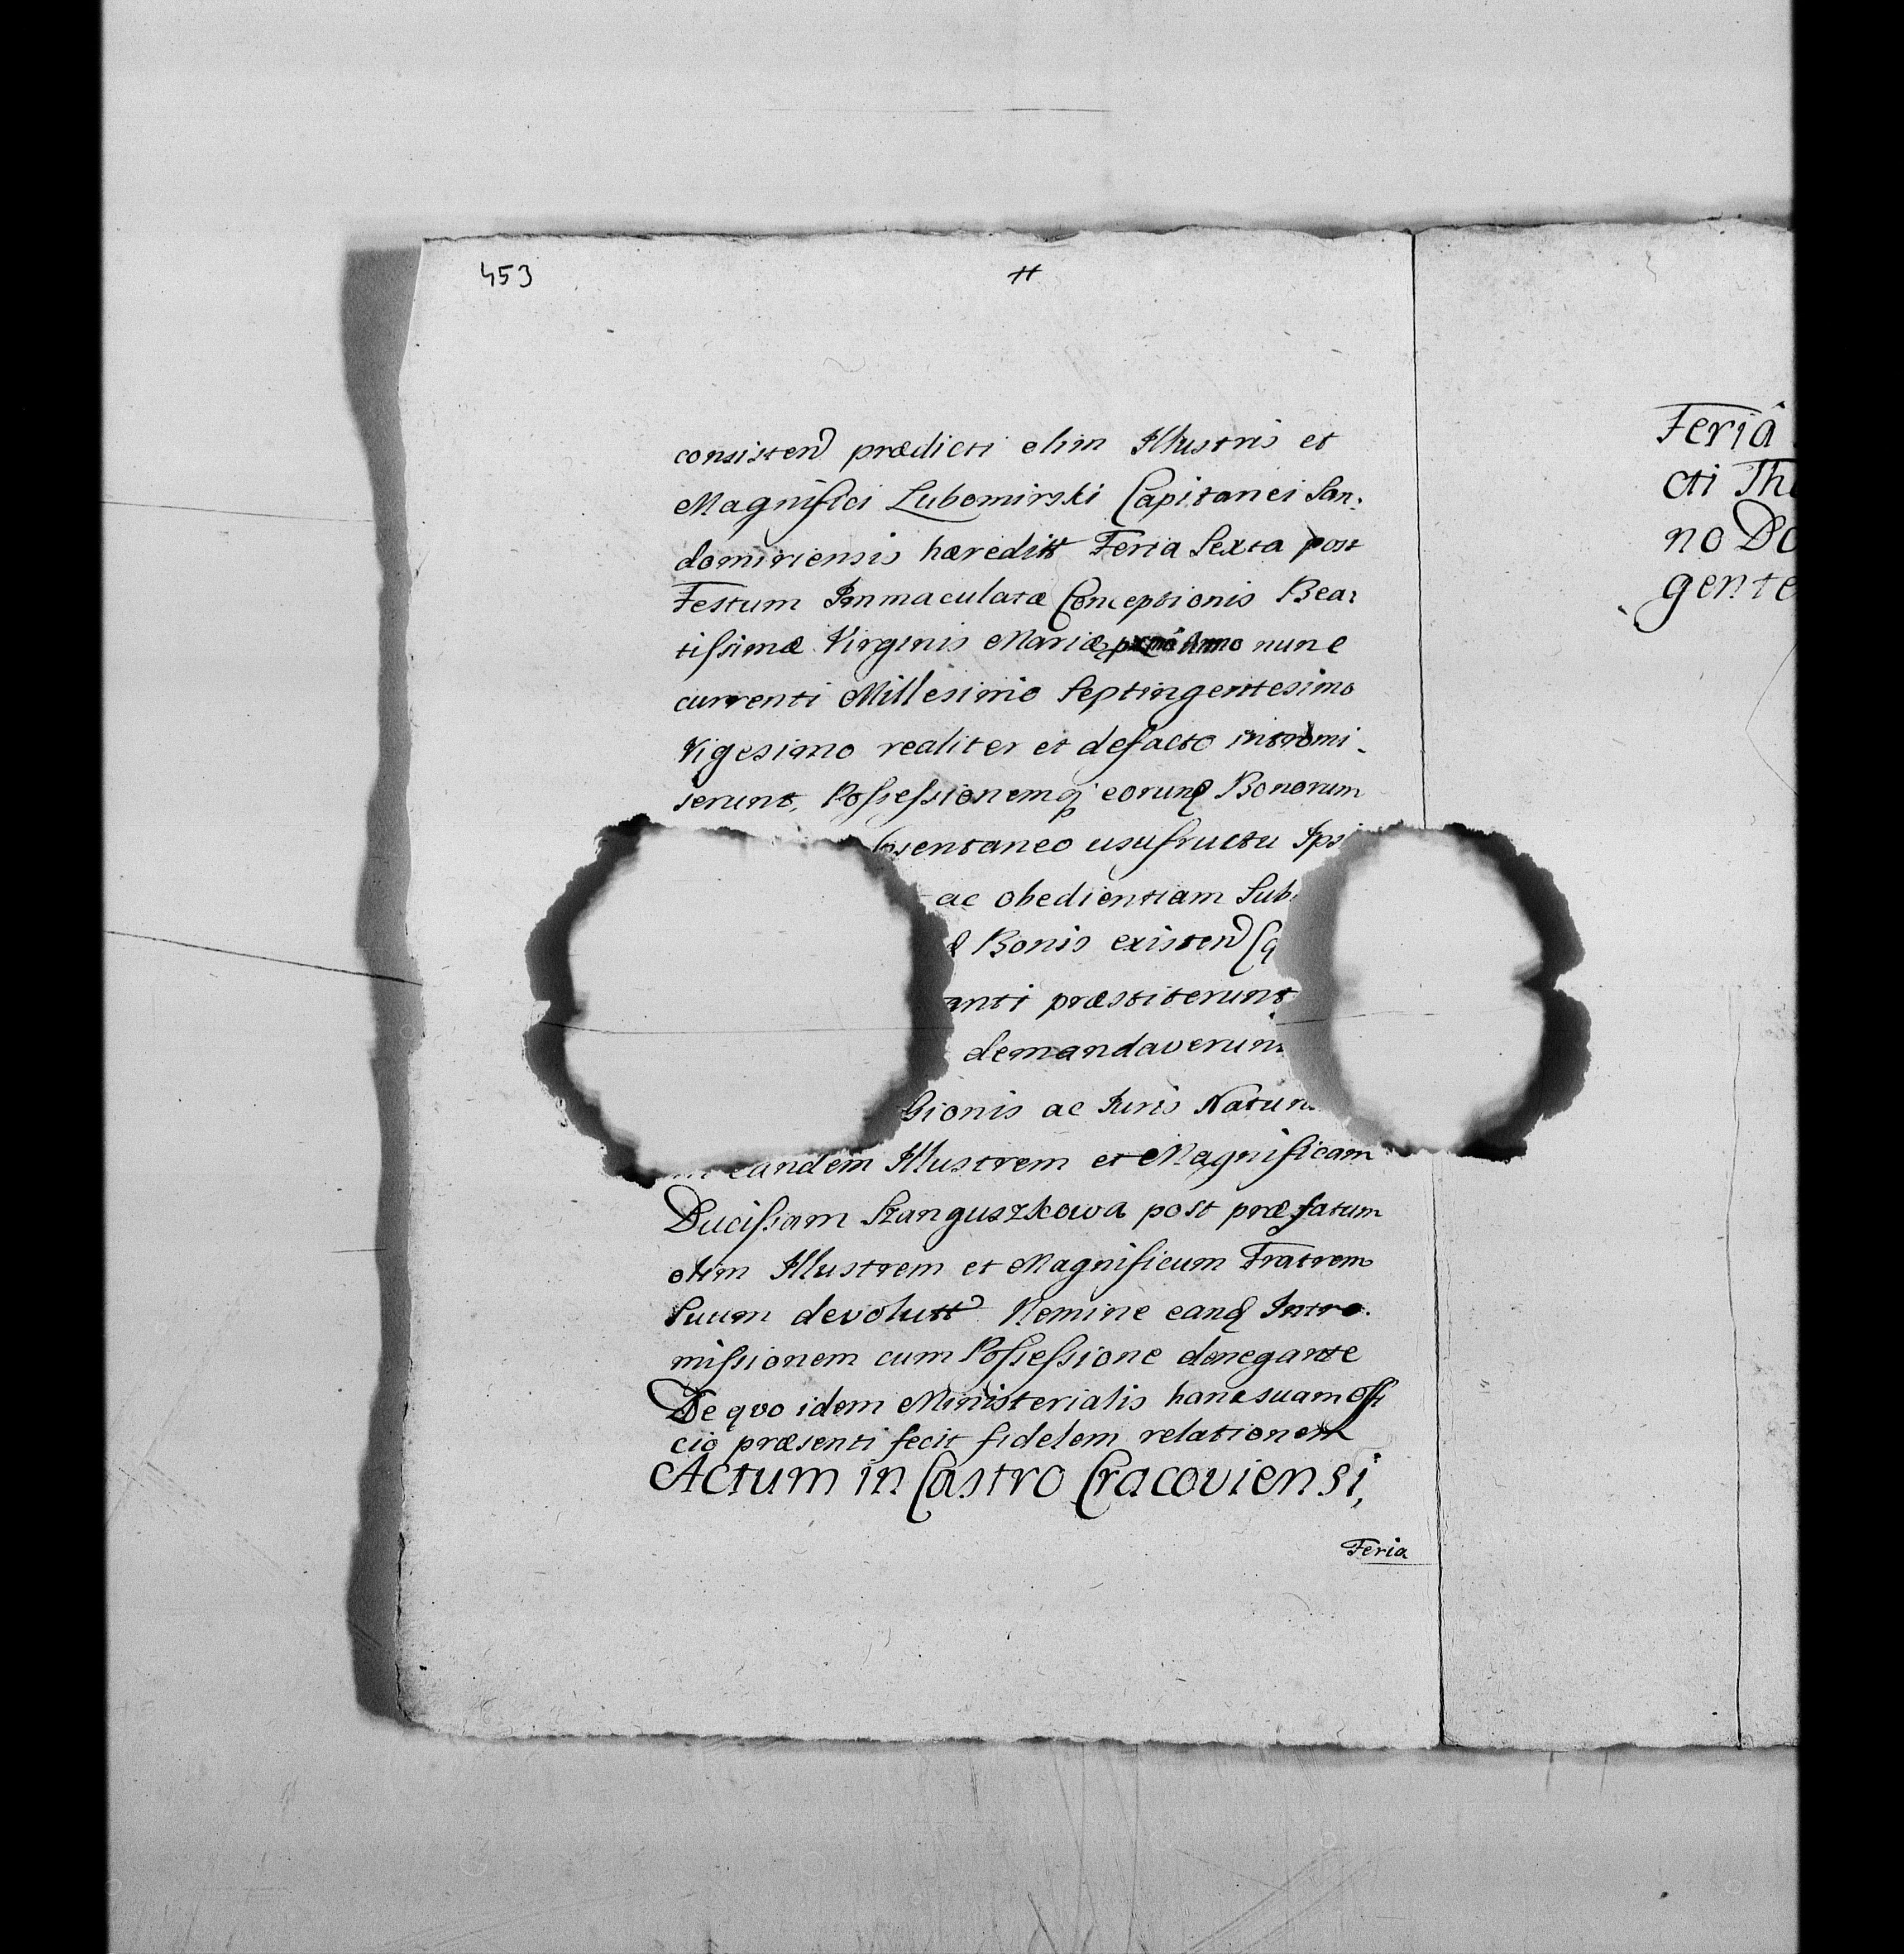 453
consisten prædicti olim Illustris et
Magnifici Lubomirski Capitanei San:
domiriensis hæreditt Feria Sexta post
Festum Immaculatæ Conceptionis Bea:
tissimæ Virginis Mariæ Anno nunc
currenti Millesimo Septingentesimo
Vigesimo realiter et defacto intromi-
serunt, Possessionemq eorund Bonorum
usufructu
ac obedientiam
Bonis existen
præstiterunt
demandaverunt
ac Juris
eandem Illustrem et Magnificam
Ducissam Szanguszkowa post præfatum
olim Illustrem et Magnificum Fratrem
Suum devolutt Nemine eand Intro-
missionem cum Possessione denegante
De quo idem Ministerialis hanc suam offi
cio præsenti fecit fidelem relationem
Actum in Castro Cracoviensi,
Feria
Feriâ
cti
no